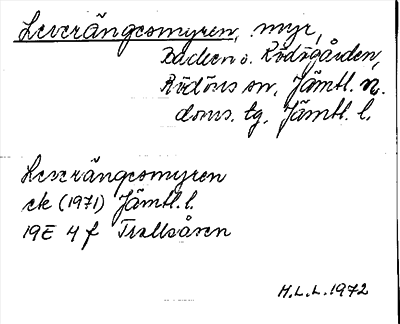 Leverängesmyren, myr,
Backen o. Rödögården,
Rödöns sn, Jämtl. n.
doms. tg, Jämtl. l.
Leverängesmyren
ek (1971) Jämtl. l.
19E 4 f Trollsåsen
H.L.L. 1972